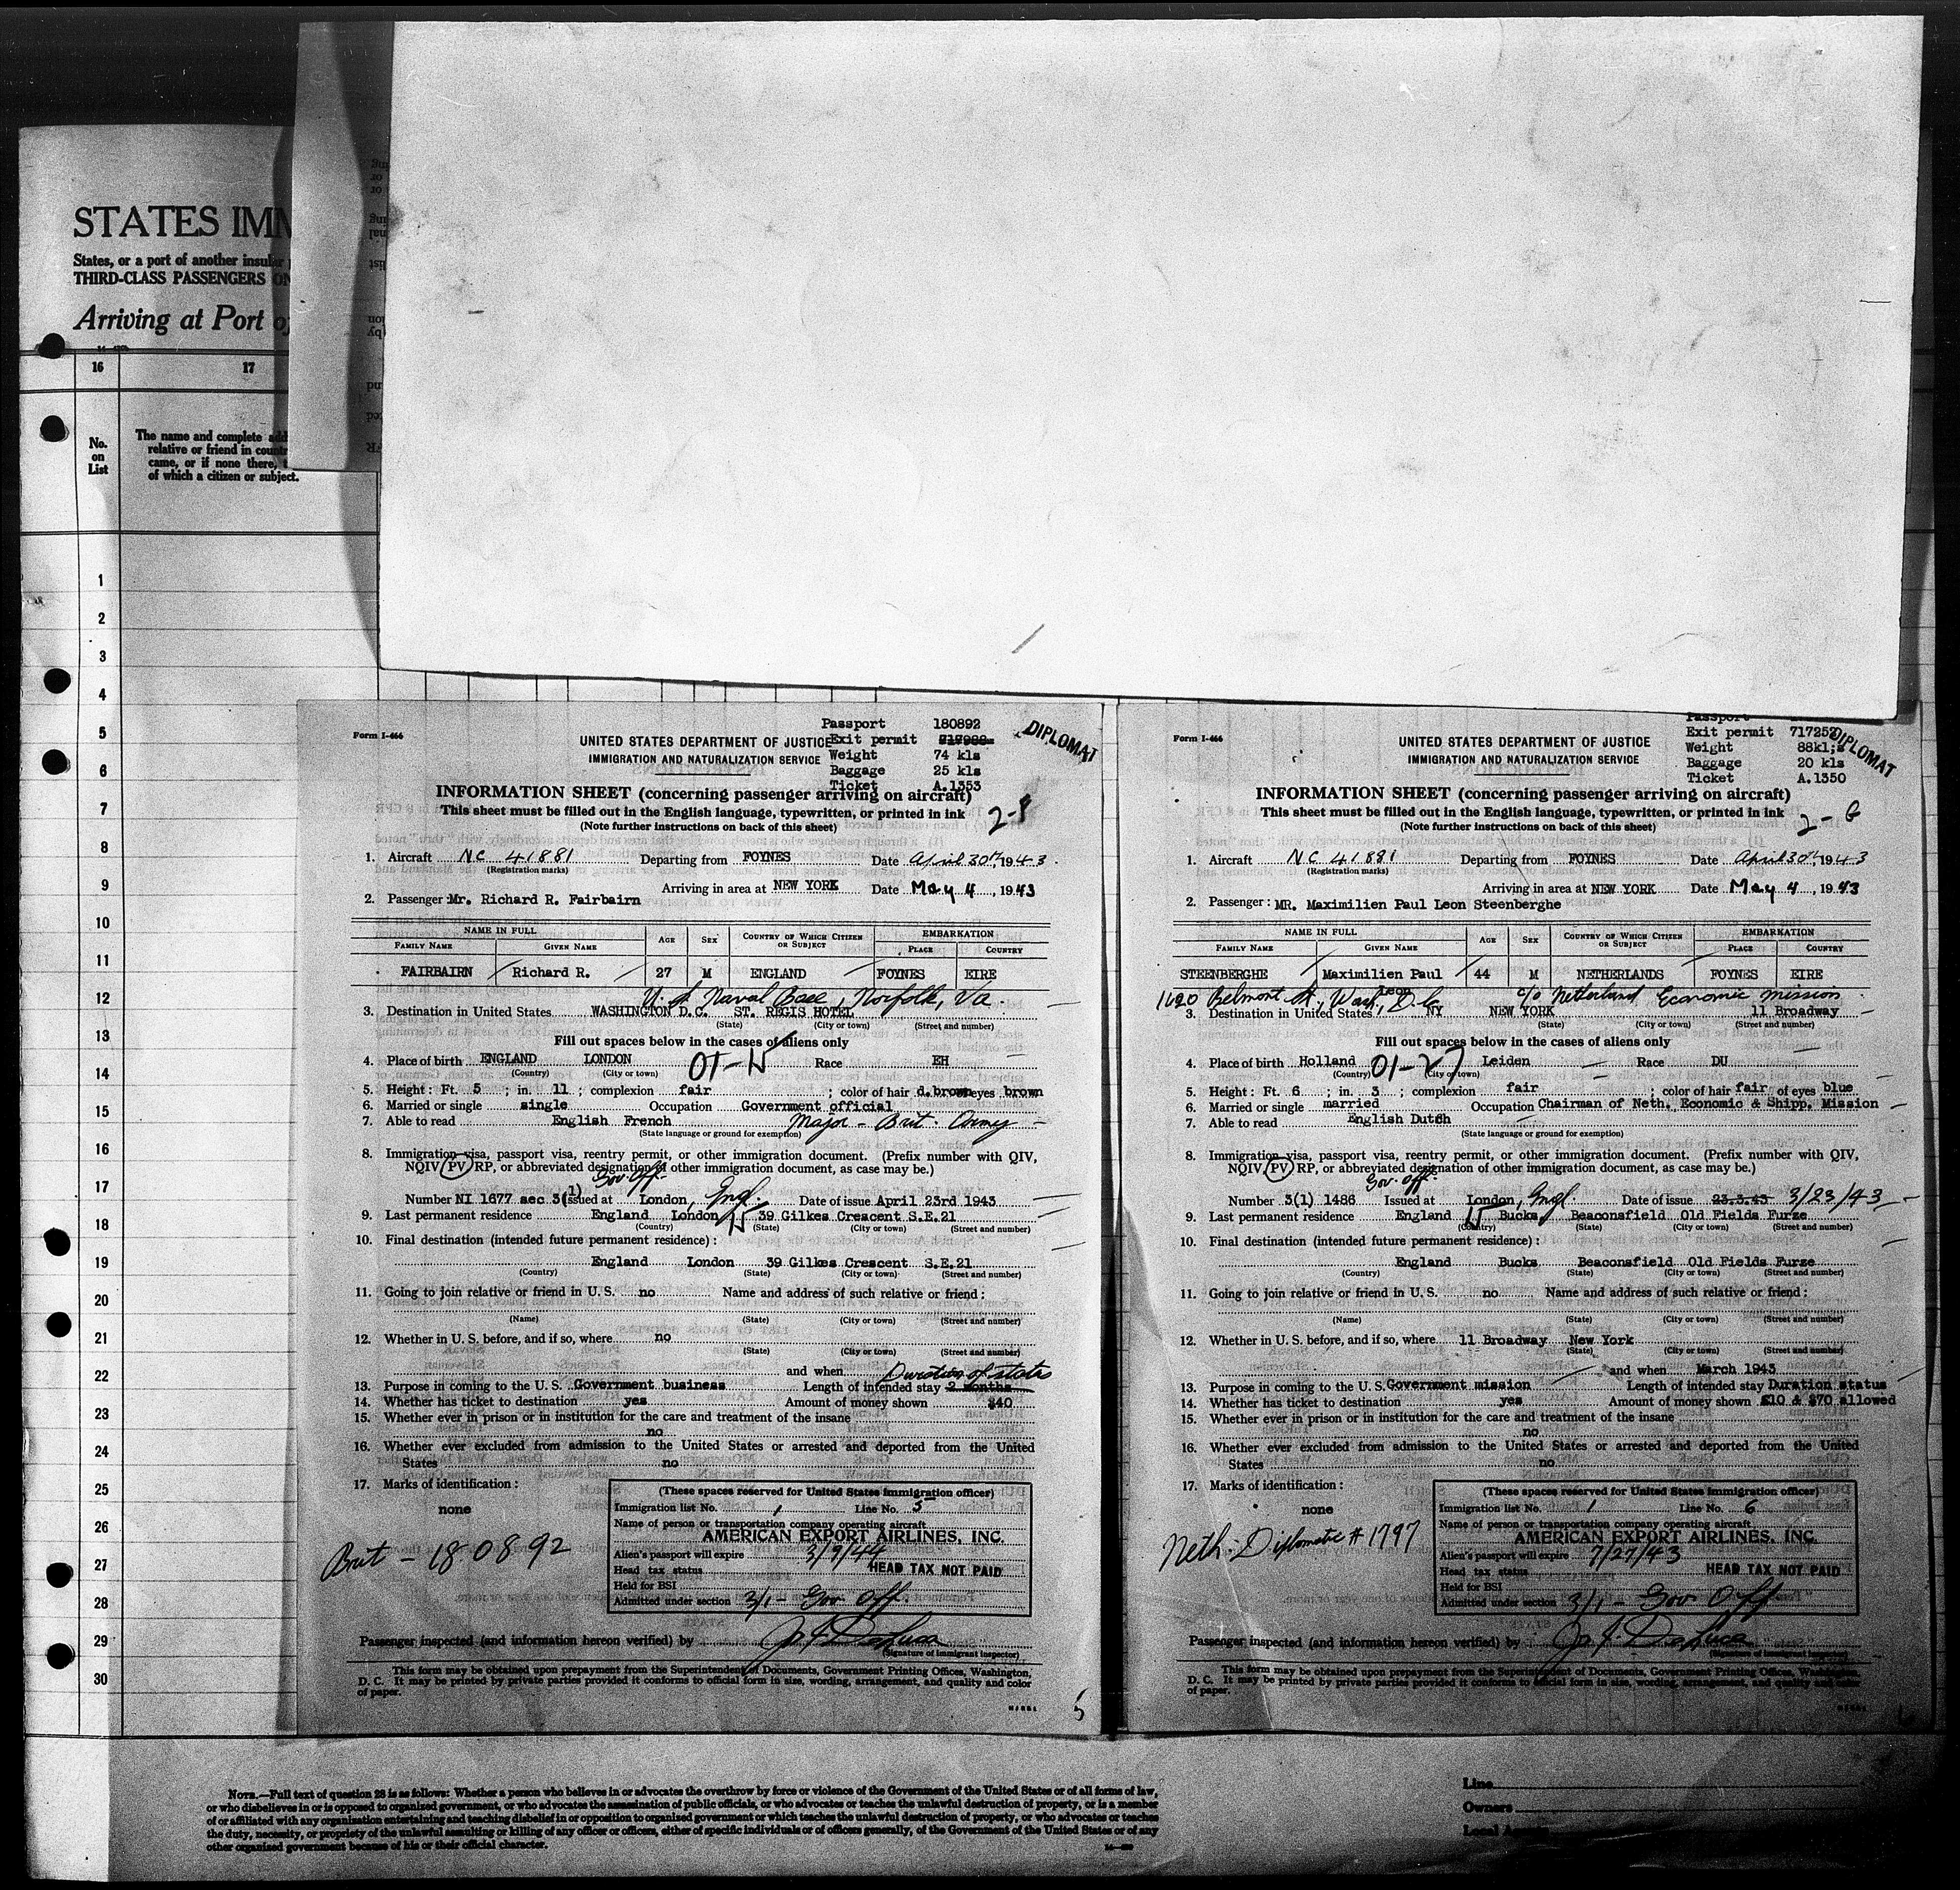 STATES IMM
States, or a port of another insular
THIRD-CLASS PASSENGERS ON
Arriving at Port of
16 17
No.
on
List
The name and complete add
relative or friend in countr
came, or if none there,
of which a citizen or subject.
1
2
3
4
5
6
7
8
9
10
11
12
13
14
15
16
17
18
19
20
21
22
23
24
25
26
27
28
29
30
Form I-466
Passport 180892
UNITED STATES DEPARTMENT OF JUSTICE Exit permit
IMMIGRATION AND NATURALIZATION SERVICE Weight 74 kls
Baggage 25 kls
Ticket A.1353
DIPLOMAT
INFORMATION SHEET (concerning passenger arriving on aircraft)
This sheet must be filled out in the English language, typewritten, or printed in ink
(Note further instructions on back of this sheet)
1. Aircraft NC 41881 Departing from FOYNES Date April 30th, 1943.
(Registration marks)
Arriving in area at NEW YORK Date May 4, 1943
2. Passenger: Mr. Richard R. Fairbairn
NAME IN FULL AGE SEX COUNTRY OF WHICH CITIZEN OR SUBJECT EMBARKATION
FAMILY NAME GIVEN NAME PLACE COUNTRY
FAIRBAIRN Richard R. 27 M ENGLAND FOYNES EIRE
U.S. Naval Base, Norfolk, Va.
3. Destination in United States WASHINGTON D.C. ST. REGIS HOTEL
(State) (City or town) (Street and number)
Fill out spaces below in the cases of aliens only
4. Place of birth ENGLAND LONDON 01-15 Race EH
(Country) (City or town)
5. Height: Ft. 5 ; in. 11 ; complexion fair ; color of hair d.brown of eyes brown
6. Married or single single Occupation Government official
7. Able to read English French Major - Brit. Army
(State language or ground for exemption)
8. Immigration visa, passport visa, reentry permit, or other immigration document. (Prefix number with QIV,
NQIV, PV, RP, or abbreviated designation of other immigration document, as case may be.)
Gov. Off.
Number NI 1677 sec 3(1) Issued at London, Engl. Date of issue April 23rd 1943
9. Last permanent residence England London 39 Gilkes Crescent S.E.21
(Country) (City or town) (State) (Street and number)
10. Final destination (intended future permanent residence):
England London 39 Gilkes Crescent S.E.21
(Country) (State) (City or town) (Street and number)
11. Going to join relative or friend in U.S. no Name and address of such relative or friend:
(Name) (State) (City or town) (Street and number)
12. Whether in U.S. before, and if so, where no
(State) (City or town) (Street and number)
and when
Duration of status
13. Purpose in coming to the U.S. Government business Length of intended stay 2 months
14. Whether has ticket to destination yes Amount of money shown $40
15. Whether ever in prison or in institution for the care and treatment of the insane
no
16. Whether ever excluded from admission to the United States or arrested and deported from the United
States no
17. Marks of identification:
none
Brit - 180892
(These spaces reserved for United States immigration officer)
Immigration list No. 1 Line No. 5
Name of person or transportation company operating aircraft
AMERICAN EXPORT AIRLINES, INC.
Alien's passport will expire 3/9/44
Head tax status HEAD TAX NOT PAID
Held for BSI
Admitted under section 3/1 - Gov Off.
Passenger inspected (and information hereon verified) by
(Signature of immigrant inspector)
This form may be obtained upon prepayment from the Superintendent of Documents, Government Printing Offices, Washington,
D. C. It may be printed by private parties provided it conforms to official form in size, wording, arrangement, and quality and color
of paper.
5
Form I-466
Passport
UNITED STATES DEPARTMENT OF JUSTICE Exit permit 717252
IMMIGRATION AND NATURALIZATION SERVICE Weight 88kls
Baggage 20 kls
Ticket A.1350
DIPLOMAT
INFORMATION SHEET (concerning passenger arriving on aircraft)
This sheet must be filled out in the English language, typewritten, or printed in ink
(Note further instructions on back of this sheet)
2-6
1. Aircraft NC 41881 Departing from FOYNES Date April 30th, 1943
(Registration marks)
Arriving in area at NEW YORK Date May 4, 1943
2. Passenger: MR. Maximilien Paul Leon Steenberghe
NAME IN FULL AGE SEX COUNTRY OF WHICH CITIZEN OR SUBJECT EMBARKATION
FAMILY NAME GIVEN NAME PLACE COUNTRY
STEENBERGHE Maximilien Paul Leon 44 M NETHERLANDS FOYNES EIRE
1620 Belmont St., Wash, D.C. c/o Netherland Economic Mission
3. Destination in United States NY NEW YORK 11 Broadway
(State) (City or town) (Street and number)
Fill out spaces below in the cases of aliens only
4. Place of birth Holland 01-27 Leiden Race DU
(Country) (City or town)
5. Height: Ft. 6 ; in. 3 ; complexion fair ; color of hair fair of eyes blue
6. Married or single married Occupation Chairman of Neth. Economic & Shipp. Mission
7. Able to read English Dutch
(State language or ground for exemption)
8. Immigration visa, passport visa, reentry permit, or other immigration document. (Prefix number with QIV,
NQIV, PV, RP, or abbreviated designation of other immigration document, as case may be.)
Gov. Off.
Number 3(1) 1486 Issued at London, Engl. Date of issue 23.3.43 3/23/43
9. Last permanent residence England Bucks Beaconsfield Old Fields Furze
(Country) (State) (City or town) (Street and number)
10. Final destination (intended future permanent residence):
England Bucks Beaconsfield Old Fields Furze
(Country) (State) (City or town) (Street and number)
11. Going to join relative or friend in U.S. no Name and address of such relative or friend:
(Name) (State) (City or town) (Street and number)
12. Whether in U.S. before, and if so, where 11 Broadway New York
(State) (City or town) (Street and number)
and when March 1943
13. Purpose in coming to the U.S. Government mission Length of intended stay Duration status
14. Whether has ticket to destination yes Amount of money shown £10 & $70 allowed
15. Whether ever in prison or in institution for the care and treatment of the insane
no
16. Whether ever excluded from admission to the United States or arrested and deported from the United
States no
17. Marks of identification:
none
Neth. Diplomatic # 1797
(These spaces reserved for United States immigration officer)
Immigration list No. 1 Line No. 6
Name of person or transportation company operating aircraft
AMERICAN EXPORT AIRLINES, INC.
Alien's passport will expire 7/27/43
Head tax status HEAD TAX NOT PAID
Held for BSI
Admitted under section 3/1 - Gov Off
Passenger inspected (and information hereon verified) by
(Signature of immigrant inspector)
This form may be obtained upon prepayment from the Superintendent of Documents, Government Printing Offices, Washington,
D. C. It may be printed by private parties provided it conforms to official form in size, wording, arrangement, and quality and color
of paper.
NOTE.—Full text of question 28 is as follows: Whether a person who believes in or advocates the overthrow by force or violence of the Government of the United States or of all forms of law,
or who disbelieves in or is opposed to organized government, or who advocates the assassination of public officials, or who advocates or teaches the unlawful destruction of property, or is a member
of or affiliated with any organization entertaining and teaching disbelief in or opposition to organized government or which teaches the unlawful destruction of property, or who advocates or teaches
the duty, necessity, or propriety of the unlawful assaulting or killing of any officer or officers, either of specific individuals or of officers generally, of the Government of the United States or of any
other organized government because of his or their official character.
Line
Owners
Local